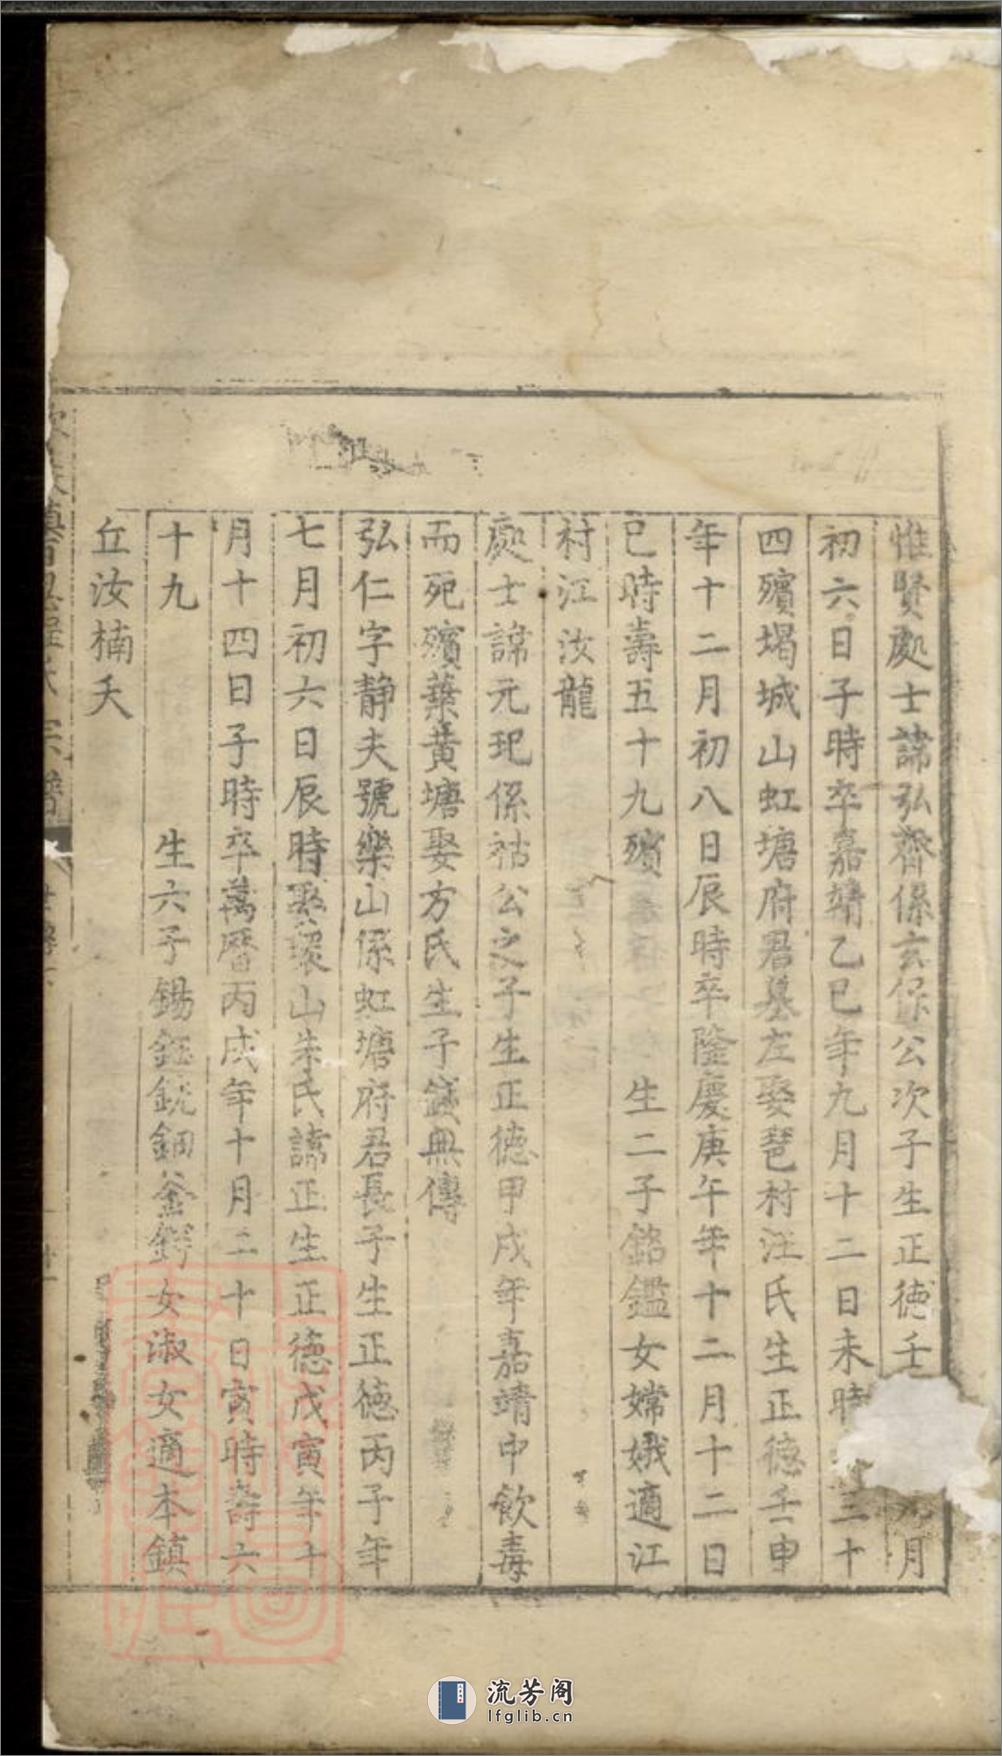 惟賢處士諱弘齊係玄保公次子生正德壬
月
初六日子時卒嘉靖乙巳年九月十二日未時
三十
四殯堨城山虹塘府君墓左娶琶村汪氏生正德壬申
年十二月初八日辰時卒隆慶庚午年十二月十二日
巳時壽五十九殯 生二子銘鑑女嫦娥適江
村江汝龍
處士諱元玘係祜公之子生正德甲戌年嘉靖中飲毒
而死殯葉黃塘娶方氏生子 無傳
弘仁字静夫號樂山係虹塘府君長子生正德丙子年
七月初六日辰時娶 山朱氏諱正生正德戊寅年十
月十四日子時卒萬曆丙戌年十月二十日寅時壽六
十九 生六子錫鈺銳鈿釜鍔女淑女適本鎮
丘汝楠夭
流芳阁
lfglib.cn